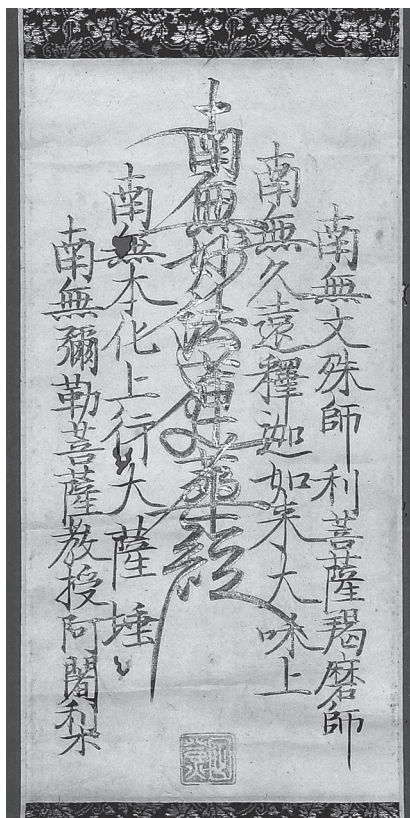 南無文殊師利菩薩羯磨師
南無久遠釋迦如来大咊上
南無妙法蓮華經
南無本化上行大薩埵
南無彌勒菩薩教授阿闍梨